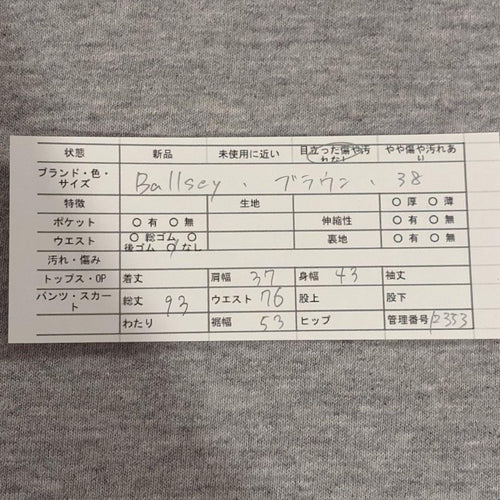 状態 新品 未使用に近い 目立った傷や汚 やや傷や汚れあ
れなし り
ブランド・色・ Ballsey、ブラウン、38
サイズ
特徴 生地 〇 厚 〇 薄
ポケット 〇 有 〇 無 伸縮性 〇 有 〇 無
ウエスト 〇 総ゴム 〇 裏地 〇 有 〇 無
後ゴム 〇 なし
汚れ・傷み
トップス・OP 着丈 肩幅 37 身幅 43 袖丈
パンツ・スカー 総丈 93 ウエスト 76 股上 股下
ト
わたり 裾幅 53 ヒップ 管理番号 2353